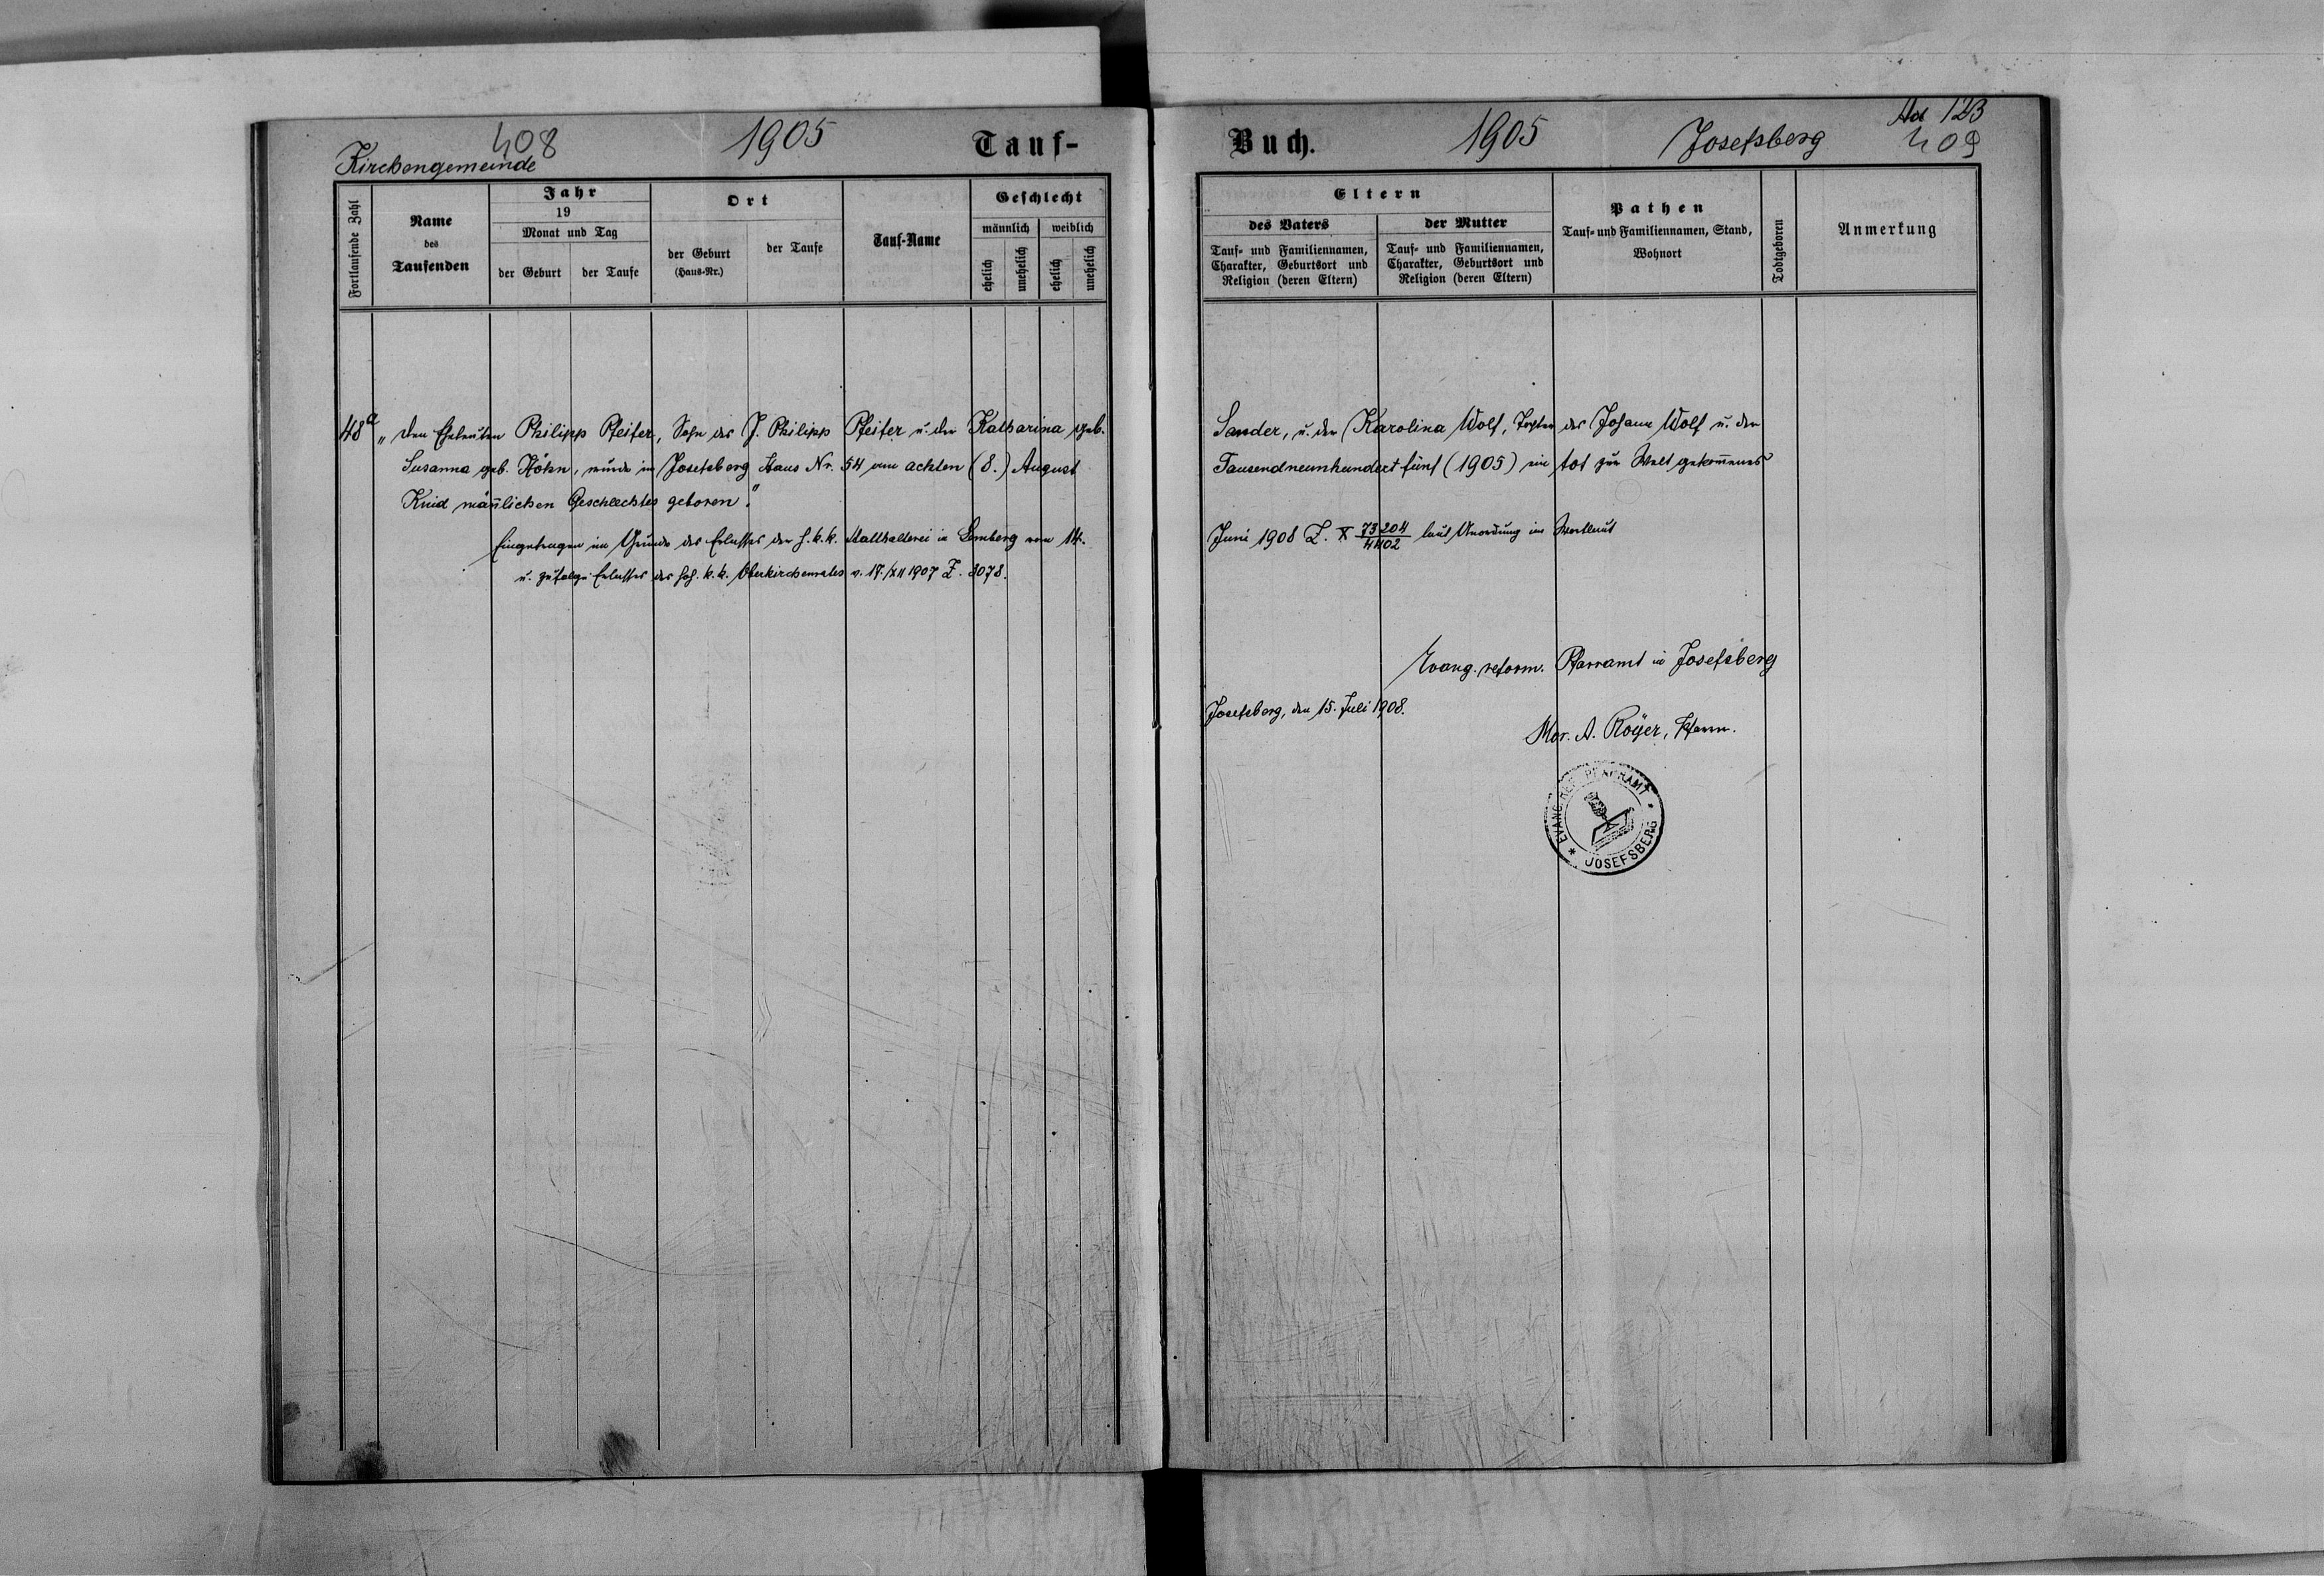 408 1905 Tauf-
Kirchengemeinde
Fortlaufende Zahl
Name
des
Taufenden
Jahr
19
Monat und Tag
der Geburt
der Taufe
Ort
der Geburt
(Haus-Nr.)
der Taufe
Tauf-Name
Geschlecht
männlich weiblich
ehelich unehelich ehelich unehelich
48a „Den Eheleuten Philipp Pfeifer, Sohn des J. Philipp Pfeifer u. der Katharina geb.
Susanna geb. Höhn, wurde in Josefsberg Haus Nr. 54 am achten (8.) August
Kind mäñlichen Geschlechtes geboren."
Eingetragen im Grunde des Erlasses der h. k. k. Statthalterei in Lemberg vom 14.
u. zufolge Erlasses des hoh. k. k. Oberkirchenrates v. 17./XII 1907 Z. 8078.
Ad 123
Buch. 1905 Josefsberg 409
Eltern
des Vaters
Tauf- und Familiennamen,
Charakter, Geburtsort und
Religion (deren Eltern)
der Mutter
Tauf- und Familiennamen,
Charakter, Geburtsort und
Religion (deren Eltern)
Pathen
Tauf- und Familiennamen, Stand,
Wohnort
Todtgeboren
Anmerkung
Sander, u. der Karolina Wolf, Tochter des Johann Wolf u. der
Tausendneunhundertfünf (1905) ein tot zur Welt gekom̄enes
Juni 1908 Z. X 73204/4402 laut Anordnung im Wortlaut
Evang. reform. Pfarramt in Josefsberg
Josefsberg, den 15. Juli 1908.
Mor. A. Royer, Pfarrer.
* EVANG. REF. PFARRAMT * JOSEFSBERG